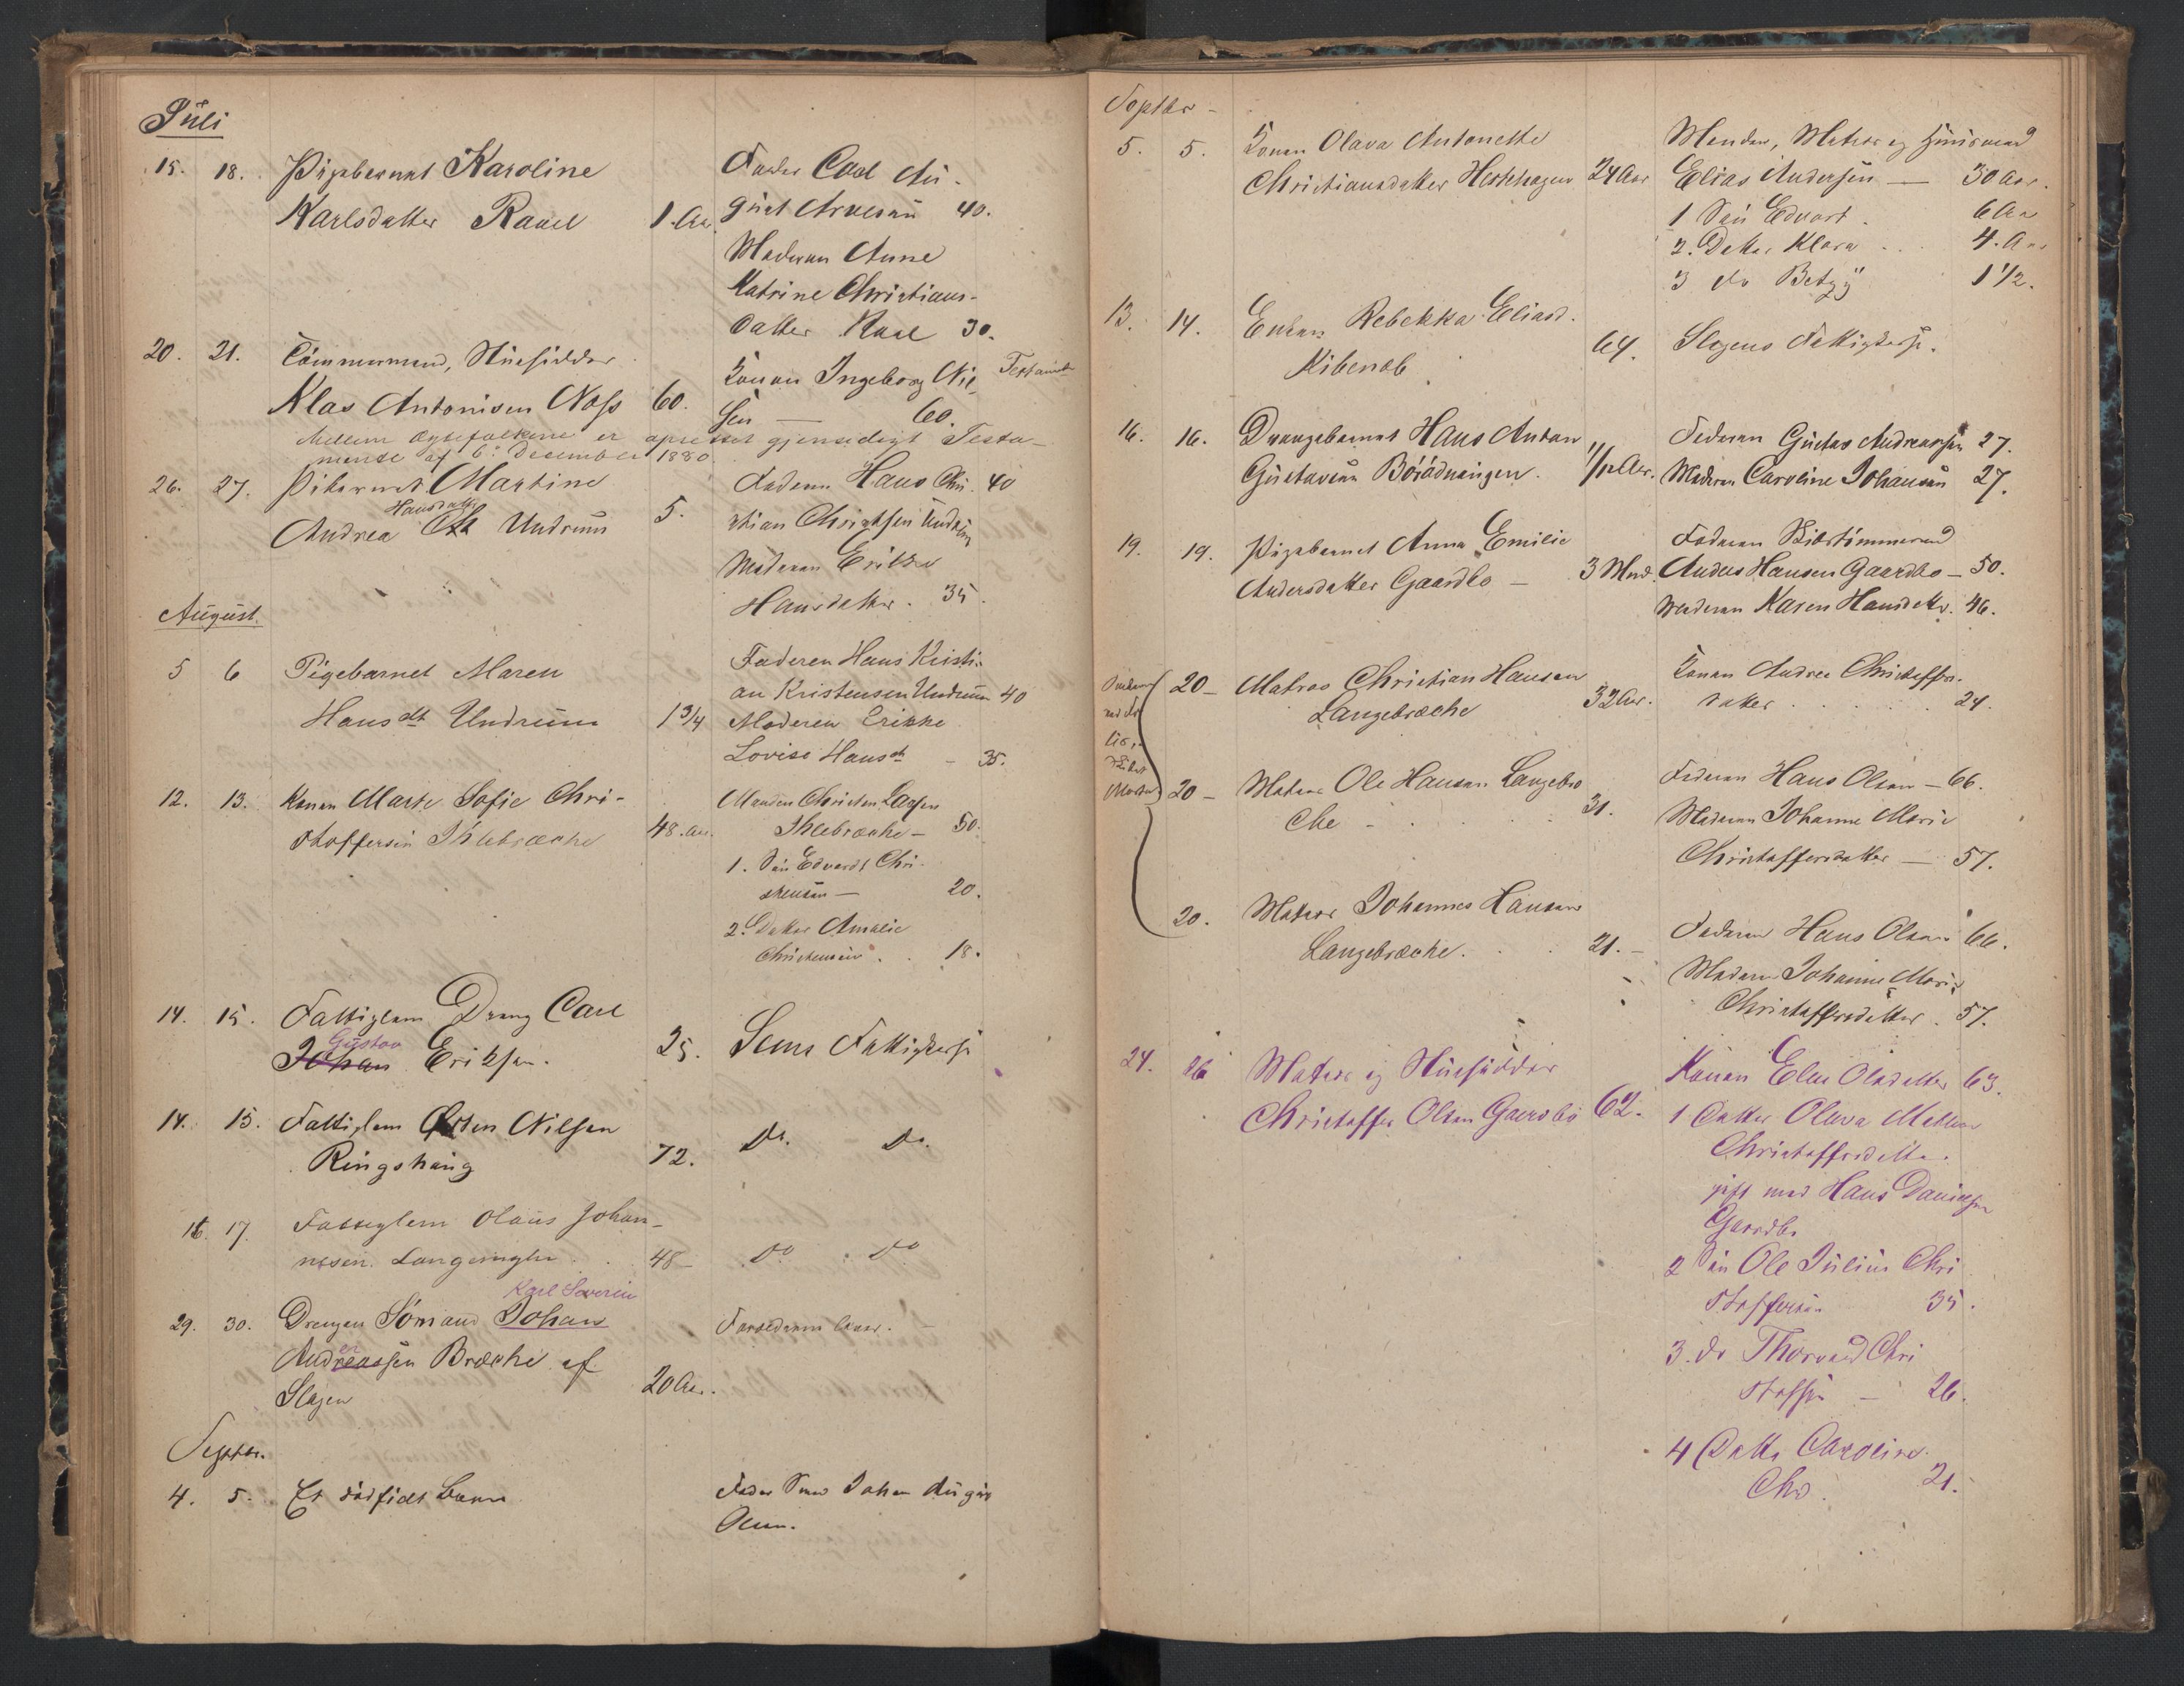 Juli
15. 18. Pigebarnet Karoline
Karlsdatter 1. Aar
Fader Carl Au-
gust 40.
Moderen Anne
Katrine Christians-
datter 30.
20. 21. Tömmermand, Huusidder
Klas Antonisen Næss 60.
Konen Ingeborg Nil
sen — 60.
Testament
Mellem Ægtefolkene er oprettet gjensidigt Testa-
mente af 6. December 1880
26. 27. Martine
Hansdatter
Andrea Undrum 5.
Faderen Hans Chri- 40
stian Christsen Undrum
Moderen Erikke
Hansdatter. 35.
August.
5 6 Pigebarnet Maren
Hansdt Undrum 1 3/4
Faderen Hans Kristi-
an Kristensen Undrum 40
Moderen Erikke
Lovise Hansdt - 35.
12. 13. Konen Marte Sofie Chri-
stoffersen Ihlebræche 48. Aar.
Manden Christen
Ihlebræche - 50.
1. Sön Edvardt Chri-
stensen — 20.
2. Datter Amalie
Christensen . . 18.
14. 15. Fattiglem Dreng Carl
Gustav
Johan Eriksen. 25.
Sems Fattigkasse
14. 15. Fattiglem Nilsen
Ringshaug 72.
Do. Do.
16. 17. Fattiglem Olaus Johan-
nesen. 48 -
Do Do
Karl Severin
29. 30. Drengen Sömand Johan
er
Andreassen Bræche af
Slagen 20 Aar.
Septbr.
4. 5. Et dödfödt Barn
Fader Johan August
Olsen.
Septbr -
5. 5. Konen Olava Antonette
Christiansdatter Hestehagen 24 Aar
Manden, Matros og Huusmand
Elias Andersen — 30 Aar.
1 Sön Edvart . 6 Aar
2. Datter Klara . . . 4. Aar
3 do Betzy 1 1/2.
13. 14. Enken Rebekka Eliasd.
64.
Slagens Fattigkasse.
16. 16. Drengebarnet Hans Anton
Gustavsen 1/12 Aar.
Faderen Gustav Andreassen 27.
Moderen Caroline Johansen 27.
19. 19. Pigebarnet Anna Emilie
Andersdatter Gaardbo - 3 Mnd.
Faderen
Anders Hansen Gaardbo - 50.
Moderen Karen Hansdatter. 46.
20 - Matros Christian Hansen
Langebræche 32 Aar.
Konen Andrea Christoffers-
datter . . . 24.
20 - Matros Ole Hansen Langebræ
che - . . . 31.
Faderen Hans Olsen - 66.
Moderen Johanne Marie
Christoffersdatter — 57.
20. Matros Johannes Hansen
Langebræche . . . 21. -
Faderen Hans Olsen 66.
Moderen Johanne Marie
Christoffersdatter . 57.
24. 26 Matros og Huusidder
Christoffer Olsen Gaardbo 62.
Konen Elen Olsdatter 63.
1 Datter Olava
Christoffersdatter.
gift med Hans Danielsen
Gaardbo
2 Sön Ole Julius Chri
stoffersen 35.
3. do Thorvald Chri
stoffsen - 26.
4 Datter Caroline
Chr. 21.